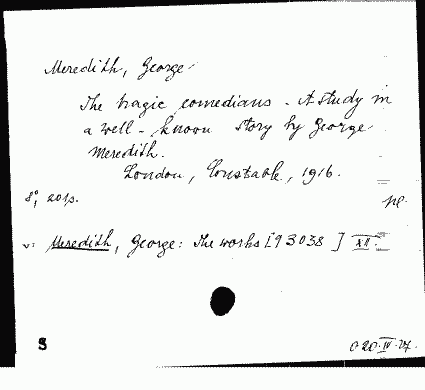 Meredith, George
The tragic comedians. A study in
a well-known story by George
Meredith.
London, Constable, 1916.
8°, 201 p.
v: Meredith, George: The works [93038] XII.
S
020.IV.27.